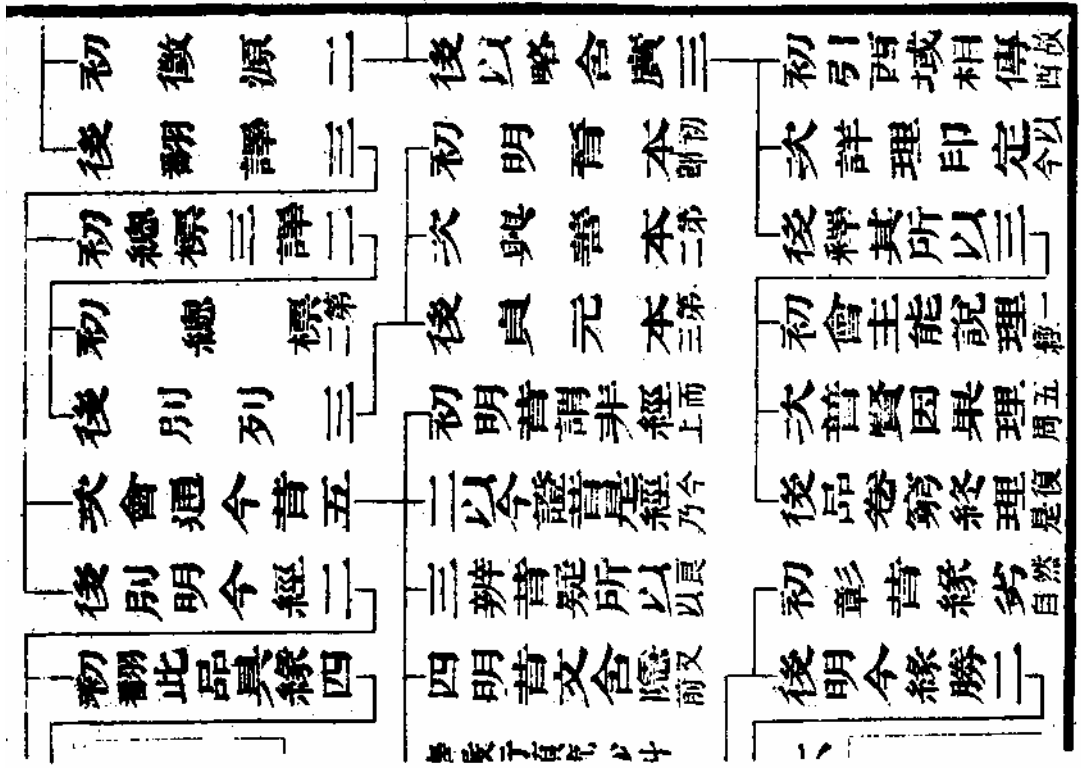 初徵源二
後翻譯三
初總標三譯二
初總標第二
後別列三
次會通今昔五
後別明今經二
初翻此品真緣四
後以略含廣三
初明晉本初即
次興善本第二
後貞元本第三
初明昔謂非經而上
二以今證昔是經今乃
三辨昔疑所以良以
四明昔文含隱又前
初引西域相傳故西
次詳理印定以今
後釋其所以三
初會主能說理一經
次普賢因果理五周
後品卷窮終理復是
初彰昔緣劣自然
後明今緣勝二